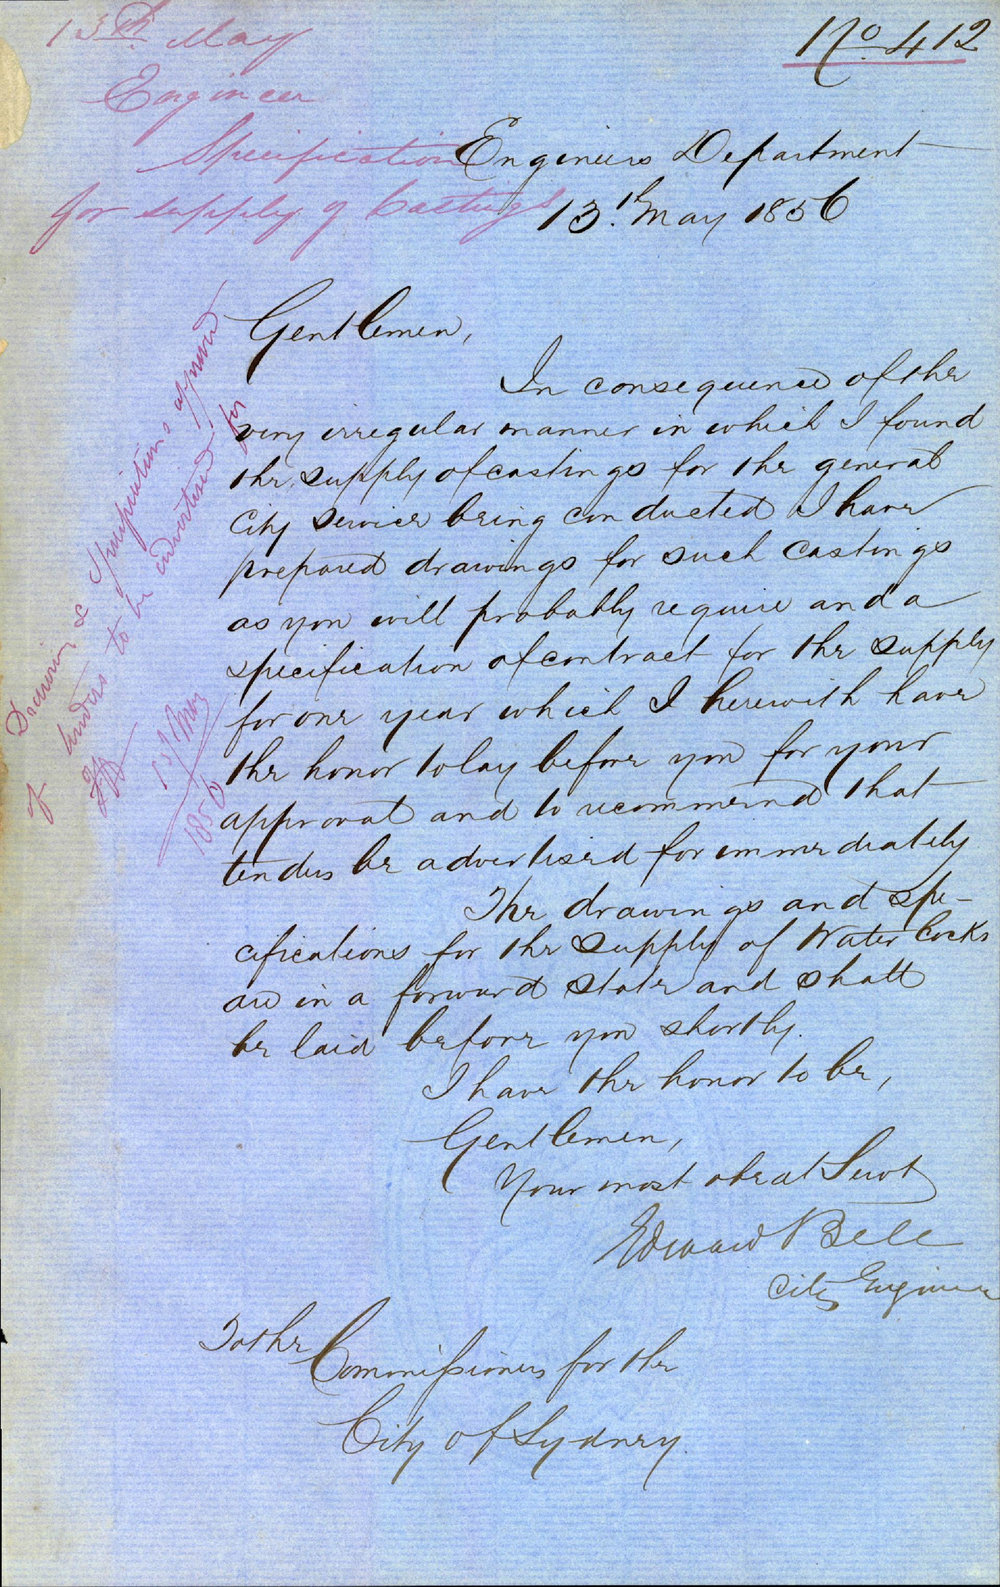 No 412
13th May
Engineer
Specification
for supply of Castings
Engineers Department
13th May 1856
Gentlemen,
In consequence of the
very irregular manner in which I found
the supply of castings for the general
City Service being conducted I have
prepared drawings for such castings
as you will probably require and a
specification of contract for the supply
for one year which I herewith have
the honor to lay before you for your
approval and to recommend that
tenders be advertised for immediately
The drawings and spe-
cifications for the supply of Water Cocks
are in a forward state and shall
be laid before you shortly.
I have the honor to be,
Gentlemen,
Your most obedt Servt
Edward Bell
City Engineer
To the Commissioners for the
City of Sydney.
Drawing & Specifications approved
of tenders to be advertised for
13 May
1856